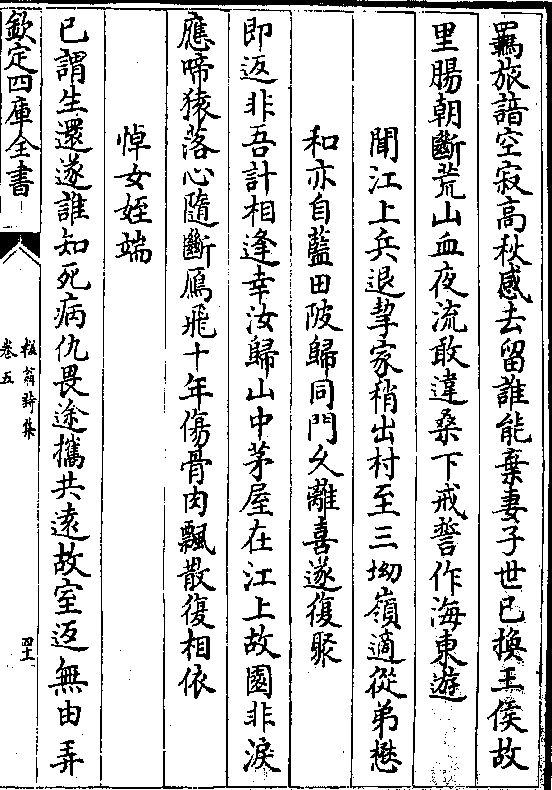 羈旅諳空寂高秋感去留誰能棄妻子世已換王侯故
里腸朝斷荒山血夜流敢違桑下戒誓作海東遊
聞江上兵退挈家稍出村至三坳嶺適從弟懋
和亦自藍田陂歸同門乆離喜遂復聚
即返非吾計相逢幸汝歸山中茅屋在江上故園非淚
應啼猿落心隨斷鴈飛十年傷骨肉飄散復相依
悼女姪端
已謂生還遂誰知死病仇畏途攜共遠故室返無由弄
欽定四庫全書
梧翁詩集
卷五